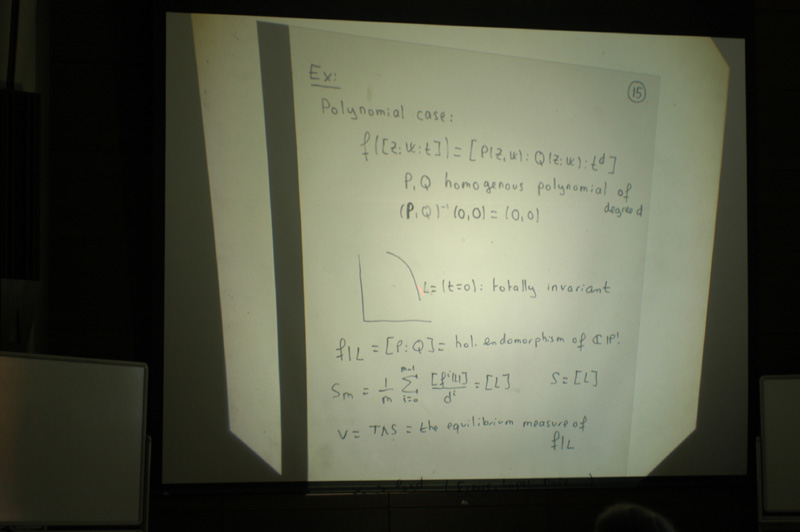 Ex:
15
Polynomial case:
f([z:w:t]) = [P(z,w) : Q(z:w) : t^d]
P, Q homogenous polynomial of degree d
(P,Q)^-1 (0,0) = (0,0)
L=(t=0): totally invariant
f|L = [P:Q] = hol. endomorphism of CIP^1
S_m = 1/m ∑_{i=0}^{m-1} [f^i(L)]/d^i = [L] S = [L]
ν = T∧S = the equilibrium measure of f|L